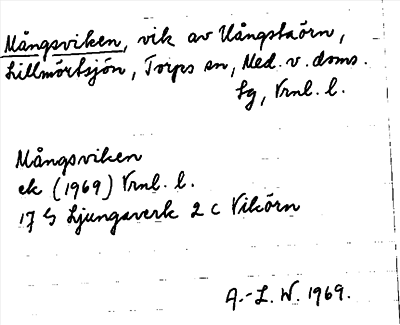 Mångsviken, vik av Uångstaörn,
Lillmörtsjön, Torps sn, Med. v. doms.
Lg, Vrnl. l.
Mångsviken
ek (1969) Vrnl. l.
17 G Ljungaverk 2 c Vikörn
A.-L. W. 1969.